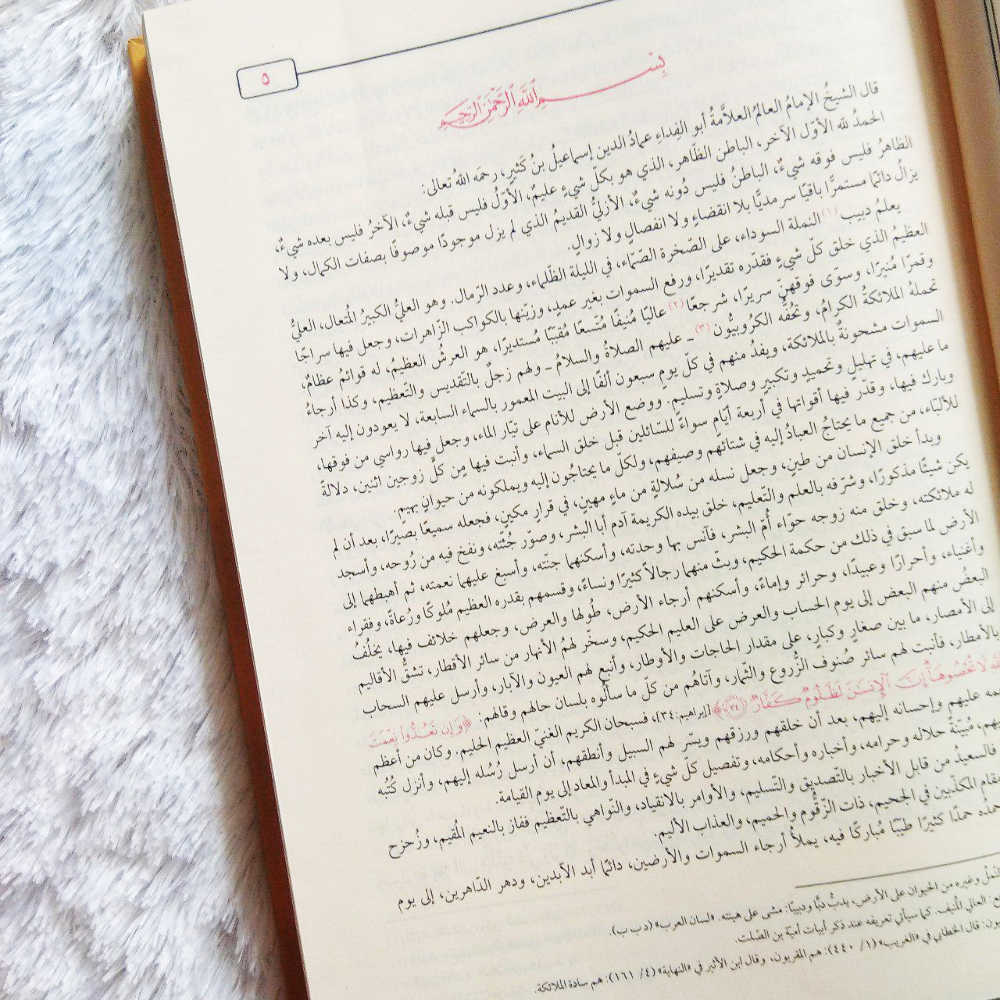 ٥
بِسْمِ اللَّهِ الرَّحْمَنِ الرَّحِيمِ
قال الشيخُ الإمامُ العالمُ العلاَّمةُ أبو الفِداءِ عمادُ الدين إسماعيلُ بنُ كَثيرٍ، رحمَه اللهُ تعالى:
الحمدُ لله الأوّل الآخر، الباطن الظّاهر، الذي هو بكلّ شيءٍ عليمٌ، الأوّلُ فليس قبله شيءٌ، الآخرُ فليس بعده شيءٌ،
الظاهرُ فليس فوقه شيءٌ، الباطنُ فليس دُونه شيءٌ، الأزليُّ القديمُ الذي لم يزل موجودًا موصوفًا بصفات الكمال، ولا
يزالُ دائمًا مستمرًّا باقيًا سرمديًّا بلا انقضاءٍ ولا انفصالٍ ولا زوالٍ.
يعلمُ دبيب (١) النملة السوداء، على الصّخرة الصّمّاء، في الليلة الظّلماء، وعدد الرّمال. وهو العليُّ الكبيرُ المُتعال، العليُّ
العظيمُ الذي خلق كلّ شيءٍ فقدّره تقديرًا، ورفع السموات بغير عمدٍ، وزيّنها بالكواكب الزّاهرات، وجعل فيها سراجًا
وقمرًا مُنيرًا، وسوّى فوقهنّ سريرًا، شرجعًا (٢) عاليًا مُنيفًا مُتّسعًا مُقبّبًا مُستديرًا، هو العرشُ العظيمُ، له قوائمُ عظامٌ،
تحملهُ الملائكةُ الكرامُ، وتحُفُّه الكرُوبيُّون (٣) ـ عليهم الصلاةُ والسلامُ ـ ولهم زجلٌ بالتّقديس والتّعظيم، وكذا أرجاءُ
السموات مشحونةٌ بالملائكة، ويفدُ منهم في كلّ يومٍ سبعون ألفًا إلى البيت المعمور بالسماء السابعة، لا يعودون إليه آخر
ما عليهم، في تهليلٍ وتحميدٍ وتكبيرٍ وصلاةٍ وتسليمٍ. ووضع الأرض للأنام على تيّار الماء، وجعل فيها رواسي من فوقها،
وبارك فيها، وقدّر فيها أقواتها في أربعة أيّامٍ سواءً للسّائلين قبل خلق السماء، وأنبت فيها من كلٍّ زوجين اثنين، دلالةً
للألبّاء، من جميع ما يحتاجُ العبادُ إليه في شتائهم وصيفهم، ولكلّ ما يحتاجُون إليه ويملكونه من حيوانٍ بهيمٍ.
وبدأ خلق الإنسان من طينٍ، وجعل نسله من سُلالةٍ من ماءٍ مهينٍ، في قرارٍ مكينٍ، فجعله سميعًا بصيرًا، بعد أن لم
يكن شيئًا مذكورًا، وشرّفه بالعلم والتّعليم، خلق بيده الكريمة آدم أبا البشر، وصوّر جُثّته، ونفخ فيه من رُوحه، وأسجد
له ملائكته، وخلق منه زوجه حوّاء أُمّ البشر، فآنس بها وحدته، وأسكنهما جنّته، وأسبغ عليهما نعمته، ثم أهبطهما إلى
الأرض لما سبق في ذلك من حكمة الحكيم، وبثّ منهما رجالاً كثيرًا ونساءً، وقسمهم بقدره العظيم مُلوكًا ورُعاةً، وفقراء
وأغنياء، وأحرارًا وعبيدًا، وحرائر وإماءً، وأسكنهم أرجاء الأرض، طُولها والعرض، وجعلهم خلائف فيها، يخلُفُ
البعضُ منهم البعض إلى يوم الحساب والعرض على العليم الحكيم، وسخّر لهمُ الأنهار من سائر الأقطار، تشقُّ الأقاليم
إلى الأمصار، ما بين صغارٍ وكبارٍ، على مقدار الحاجات والأوطار، وأنبع لهم العيون والآبار، وأرسل عليهم السحاب
بالأمطار، فأنبت لهم سائر صُنوف الزُّروع والثّمار، وآتاهُم من كلّ ما سألُوه بلسان حالهم وقالهم: ﴿وَإِن تَعُدُّوا نِعْمَتَ
اللَّهِ لَا تُحْصُوهَا إِنَّ الْإِنسَانَ لَظَلُومٌ كَفَّارٌ ٣٤﴾ [إبراهيم: ٣٤]، فسبحان الكريم الغنيّ العظيم الحليم. وكان من أعظم
نعمه عليهم وإحسانه إليهم، بعد أن خلقهم ورزقهم ويسّر لهم السبيل وأنطقهم، أن أرسل رُسُله إليهم، وأنزل كُتُبه
مُبيّنةً حلاله وحرامه، وأخباره وأحكامه، وتفصيل كلّ شيءٍ في المبدأ والمعاد إلى يوم القيامة.
فالسعيدُ من قابل الأخبار بالتصديق والتّسليم، والأوامر بالانقياد، والنّواهي بالتّعظيم ففاز بالنعيم المُقيم، وزُحزح
مقام المكذّبين في الجحيم، ذات الزّقُّوم والحميم، والعذاب الأليم.
حمدًا كثيرًا طيّبًا مُباركًا فيه، يملأُ أرجاء السموات والأرضين، دائمًا أبد الآبدين، ودهر الدّاهرين، إلى يوم
النمل وغيره من الحيوان على الأرض، يدبُّ دبًّا ودبيبًا: مشى على هيئته. «لسان العرب» (د ب ب).
العالي المُنيف. كما سيأتي تعريفه عند ذكر أبيات أميّة بن الصّلت.
قال الخطابي في «الغريب» (١/ ٤٤٠): هم المقربون، وقال ابن الأثير في «النهاية» (٤/ ١٦١): هم سادة الملائكة.